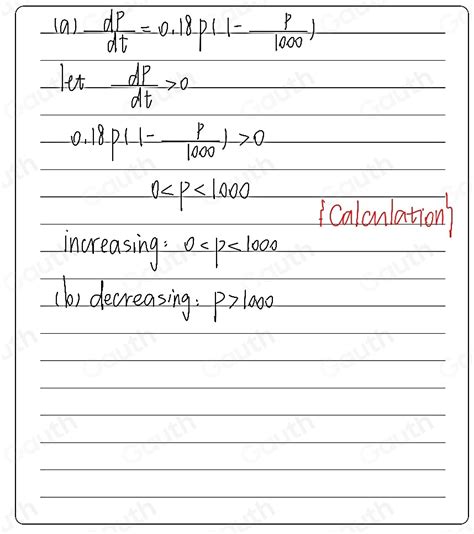 (a) dP/dt = 0.18p(1 - p/1000)
let dP/dt > 0
0.18p(1 - p/1000) > 0
0<p<1000
{Calculation}
increasing: 0<p<1000
(b) decreasing: p>1000
Gauth